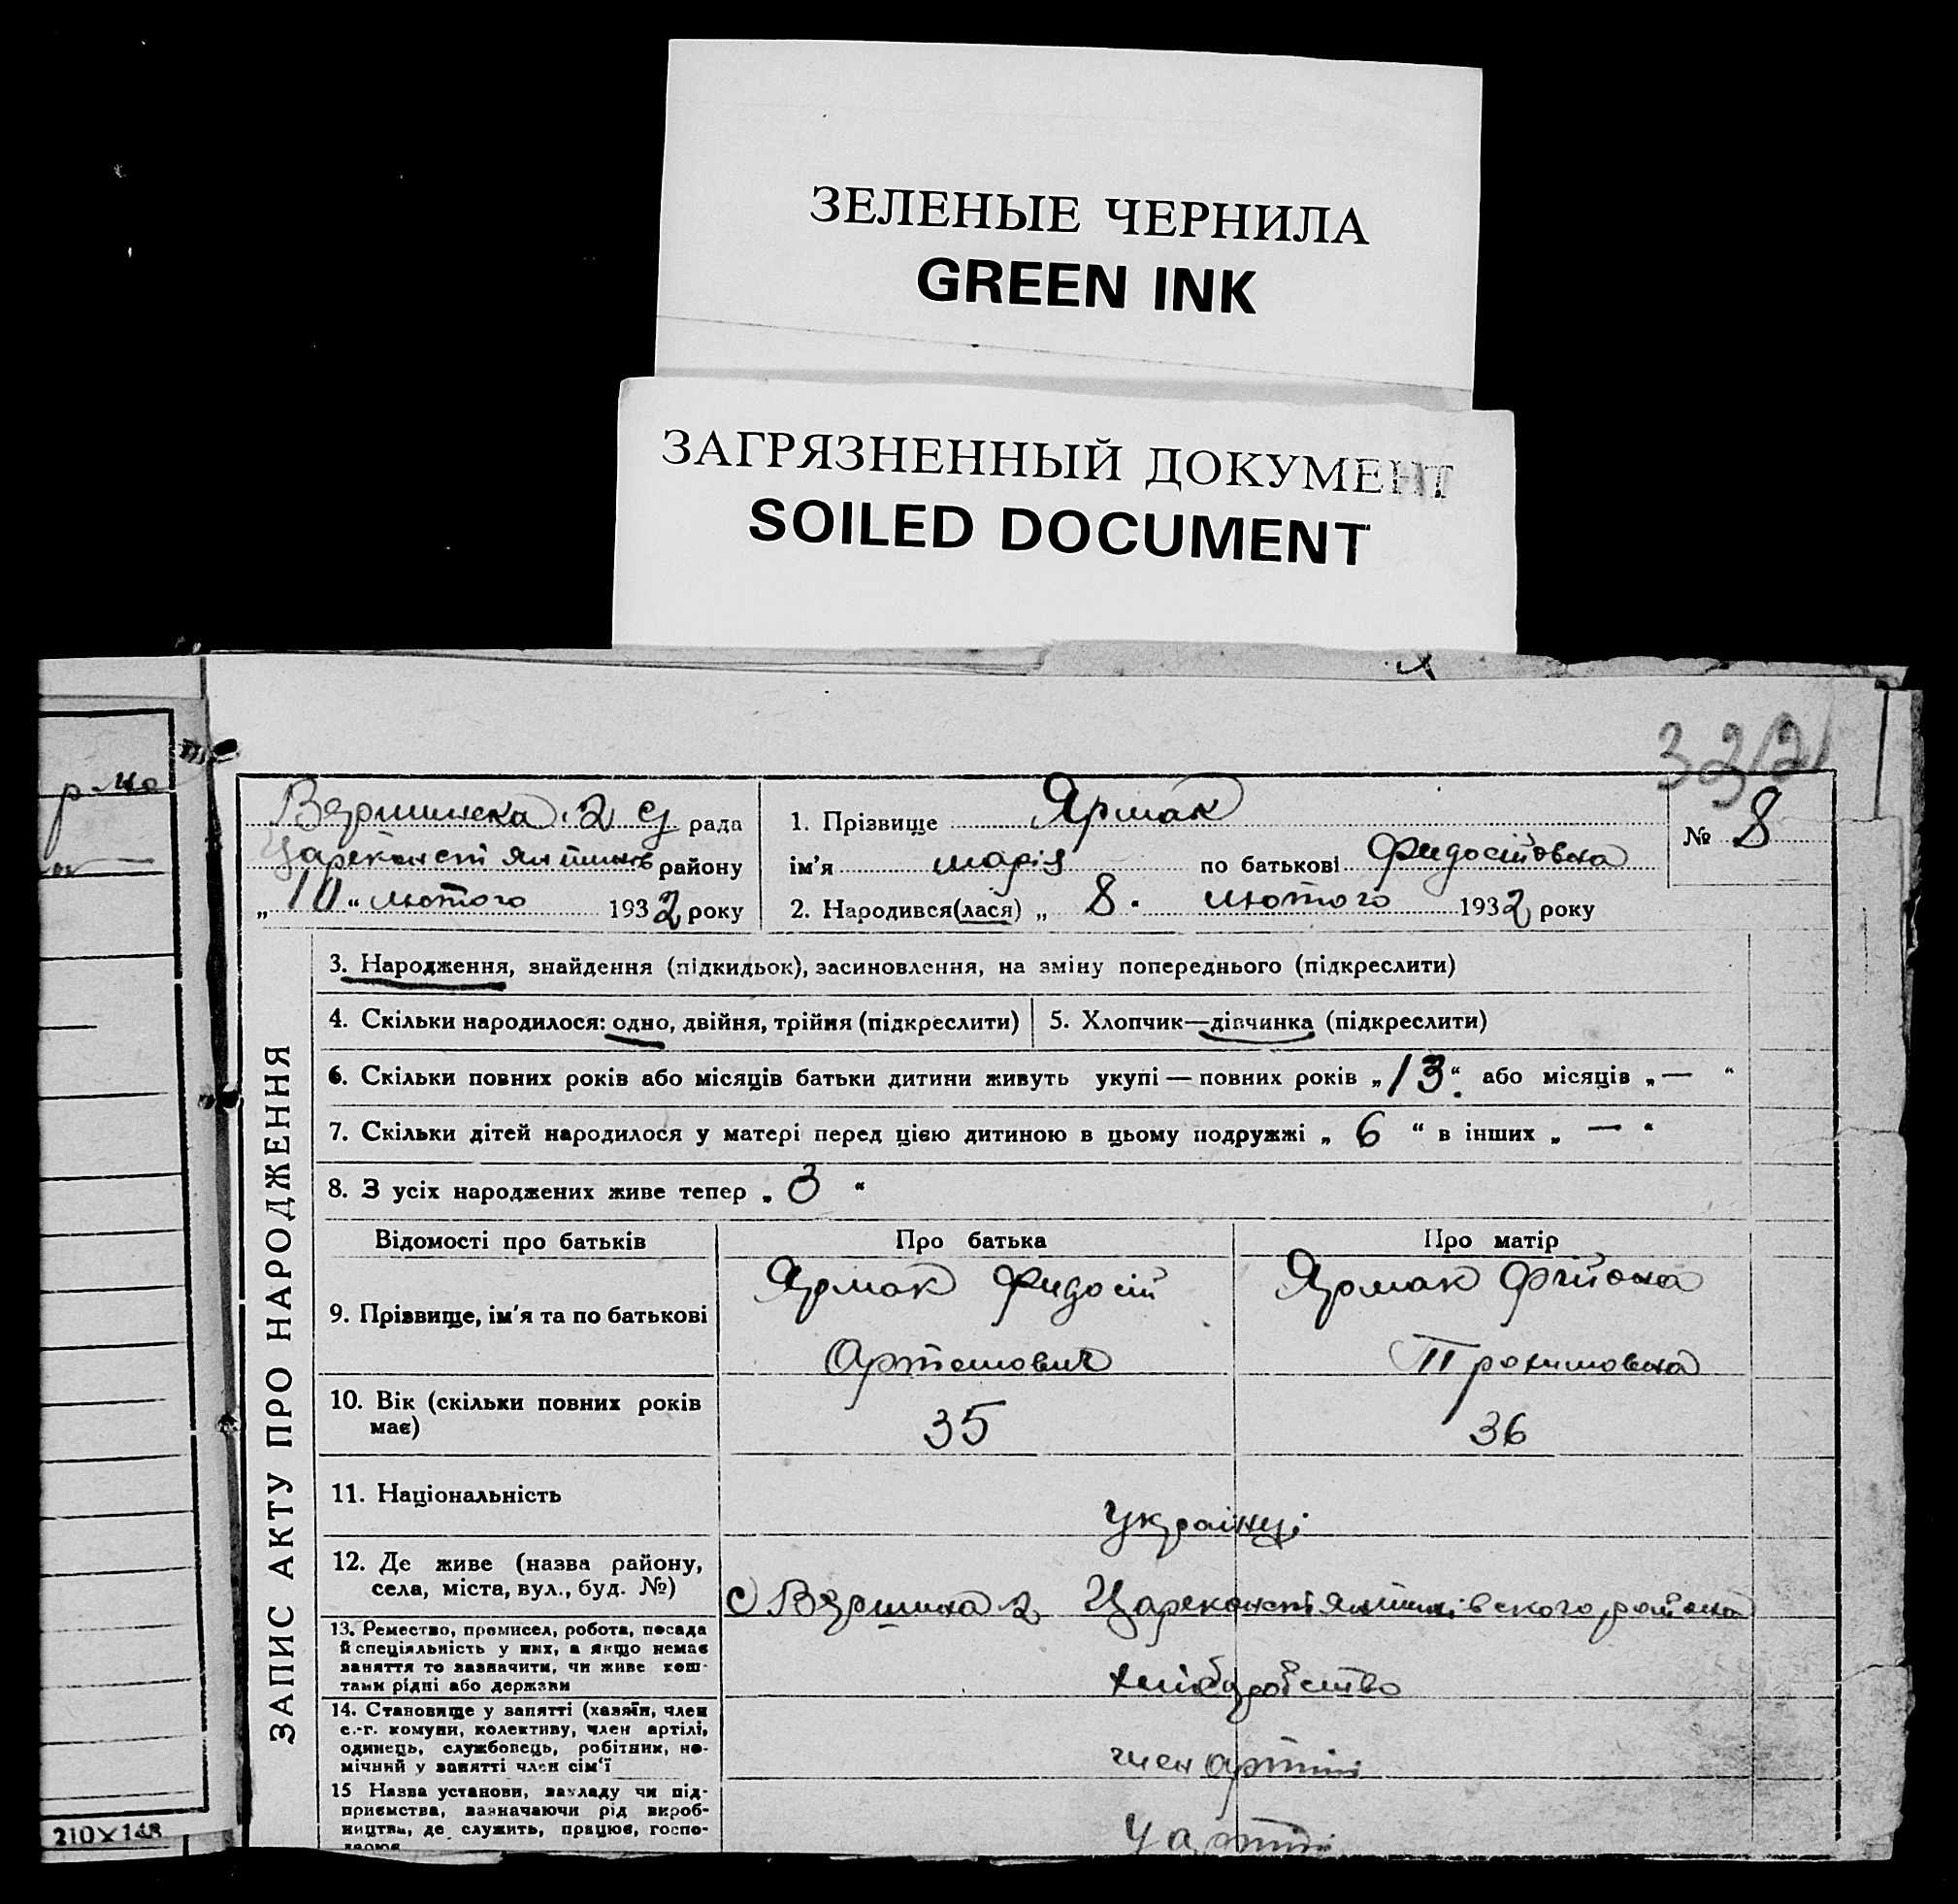 ЗЕЛЕНЫЕ ЧЕРНИЛА
GREEN INK
ЗАГРЯЗНЕННЫЙ ДОКУМЕНТ
SOILED DOCUMENT
3321
ЗАПИС АКТУ ПРО НАРОДЖЕННЯ
Вершинска 2 рада
району
„10“ лютого 1932 року
1. Прізвище Ярмак
№ 8
ім’я марія по батькові Фидосійовна
2. Народився(лася) „ 8. лютого 1932 року
3. Народження, знайдення (підкидьок), засиновлення, на зміну попереднього (підкреслити)
4. Скільки народилося: одно, двійня, трійня (підкреслити)
5. Хлопчик—дівчинка (підкреслити)
6. Скільки повних років або місяців батьки дитини живуть укупі — повних років „13“ або місяців „—“
7. Скільки дітей народилося у матері перед цією дитиною в цьому подружжі „ 6 “ в інших „ — “
8. З усіх народжених живе тепер „ 3 “
Відомості про батьків
Про батька
Про матір
9. Прізвище, ім’я та по батькові
Ярмак Фидосій
Артемович
Ярмак
Прохимовна
10. Вік (скільки повних років
має)
35
36
11. Національність
українці
12. Де живе (назва району,
села, міста, вул., буд. №)
с Вершина 2 Цареконстянтинівского района
13. Ремество, промисел, робота, посада
й спеціяльність у них, а якщо немає
заняття то зазначити, чи живе кош-
тами рідні або держави
хліборобство
14. Становище у занятті (хазяїн, член
с.-г. комуни, колективу, член артілі,
одинець, службовець, робітник, по-
мічний у занятті член сім’ї
член артілі
15 Назва установи, закладу чи під-
приємства, зазначаючи рід вироб-
ництва, де служить, працює, госпо-
дарює
У артілі
210×148